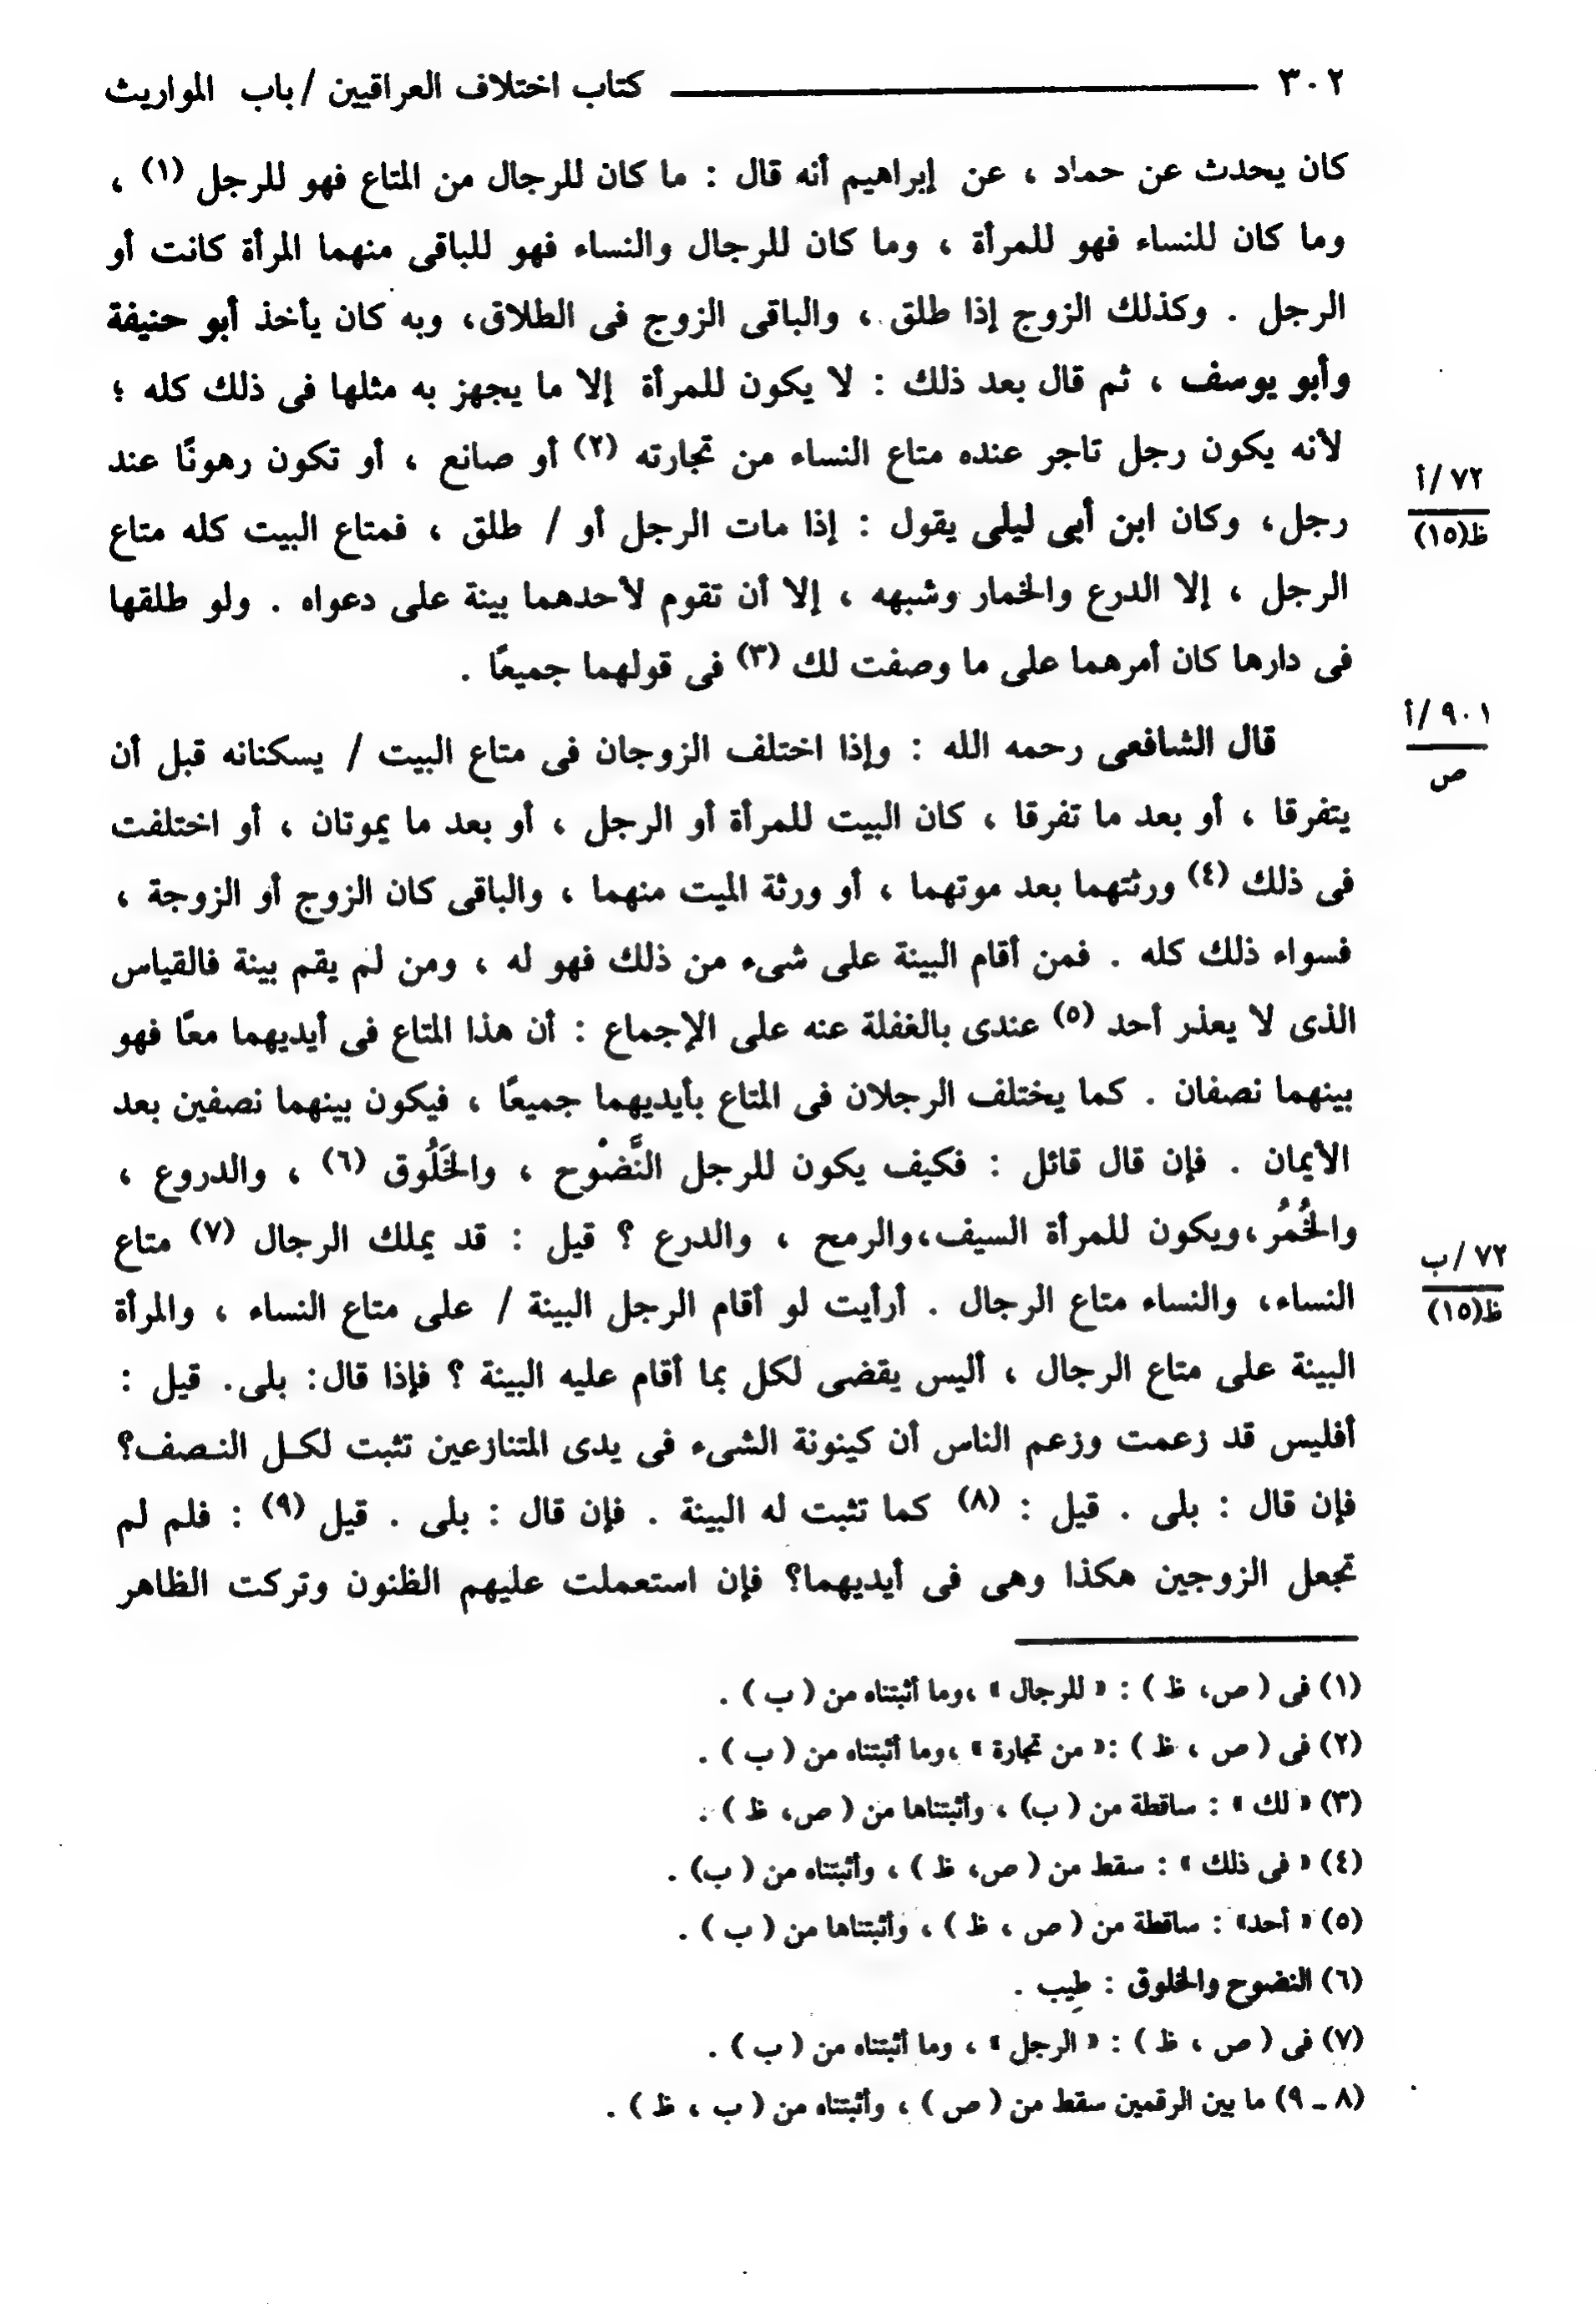 ٣٠٢ كتاب اختلاف العراقيين / باب المواريث
كان يحدث عن حماد ، عن إبراهيم أنه قال : ما كان للرجال من المتاع فهو للرجل (١) ،
وما كان للنساء فهو للمرأة ، وما كان للرجال والنساء فهو للباقى منهما المرأة كانت أو
الرجل . وكذلك الزوج إذا طلق ، والباقى الزوج فى الطلاق، وبه كان يأخذ أبو حنيفة
وأبو يوسف ، ثم قال بعد ذلك : لا يكون للمرأة إلا ما يجهز به مثلها فى ذلك كله ؛
لأنه يكون رجل تاجر عنده متاع النساء من تجارته (٢) أو صانع ، أو تكون رهونًا عند
٧٢ /أ
ظ(١٥)
رجل، وكان ابن أبى ليلى يقول : إذا مات الرجل أو / طلق ، فمتاع البيت كله متاع
الرجل ، إلا الدرع والخمار وشبهه ، إلا أن تقوم لأحدهما بينة على دعواه . ولو طلقها
فى دارها كان أمرهما على ما وصفت لك (٣) فى قولهما جميعًا .
٩٠١ /أ
ص
قال الشافعى رحمه الله : وإذا اختلف الزوجان فى متاع البيت / يسكنانه قبل أن
يتفرقا ، أو بعد ما تفرقا ، كان البيت للمرأة أو الرجل ، أو بعد ما يموتان ، أو اختلفت
فى ذلك (٤) ورثتهما بعد موتهما ، أو ورثة الميت منهما ، والباقى كان الزوج أو الزوجة ،
فسواء ذلك كله . فمن أقام البينة على شىء من ذلك فهو له ، ومن لم يقم بينة فالقياس
الذى لا يعذر أحد (٥) عندى بالغفلة عنه على الإجماع : أن هذا المتاع فى أيديهما معًا فهو
بينهما نصفان . كما يختلف الرجلان فى المتاع بأيديهما جميعًا ، فيكون بينهما نصفين بعد
الأيمان . فإن قال قائل : فكيف يكون للرجل النَّضُوح ، والخَلُوق (٦) ، والدروع ،
والخُمُر،ويكون للمرأة السيف،والرمح ، والدرع ؟ قيل : قد يملك الرجال (٧) متاع
٧٢ /ب
ظ(١٥)
النساء، والنساء متاع الرجال . أرأيت لو أقام الرجل البينة / على متاع النساء ، والمرأة
البينة على متاع الرجال ، أليس يقضى لكل بما أقام عليه البينة ؟ فإذا قال: بلى. قيل :
أفليس قد زعمت وزعم الناس أن كينونة الشىء فى يدى المتنازعين تثبت لكـل النـصف؟
فإن قال : بلى . قيل : (٨) كما تثبت له البينة . فإن قال : بلى . قيل (٩) : فلم لم
تجعل الزوجين هكذا وهى فى أيديهما؟ فإن استعملت عليهم الظنون وتركت الظاهر
(١) فى ( ص، ظ ) : « للرجال » ،وما أثبتناه من ( ب ) .
(٢) فى ( ص ، ظ ) :« من تجارة » ،وما أثبتناه من ( ب ) .
(٣) « لك » : ساقطة من ( ب) ، وأثبتناها من ( ص، ظ ) .
(٤) « فى ذلك » : سقط من ( ص، ظ ) ، وأثبتناه من ( ب) .
(٥) « أحد» : ساقطة من ( ص ، ظ ) ، وأثبتناها من ( ب ) .
(٦) النضوح والخلوق : طِيب .
(٧) فى ( ص ، ظ ) : « الرجل » ، وما أثبتناه من ( ب ) .
(٨ ـ ٩) ما بين الرقمين سقط من ( ص ) ، وأثبتناه من ( ب ، ظ ) .